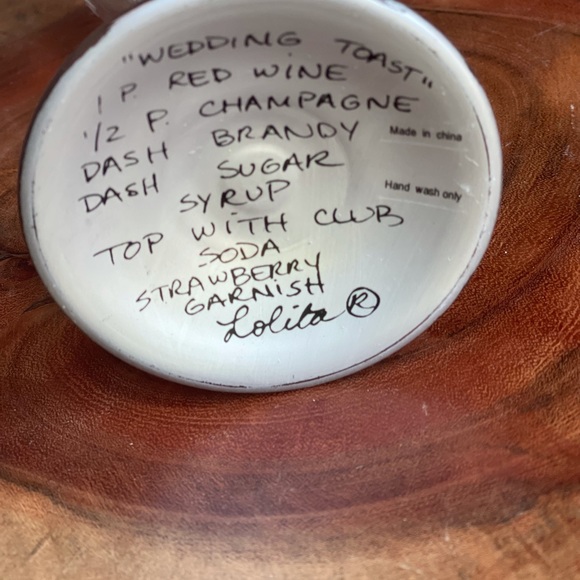 "WEDDING TOAST"
1 P. RED WINE
1/2 P. CHAMPAGNE
DASH BRANDY
DASH SUGAR
SYRUP
TOP WITH CLUB
SODA
STRAWBERRY
GARNISH
Lolita ®
Made in china
Hand wash only